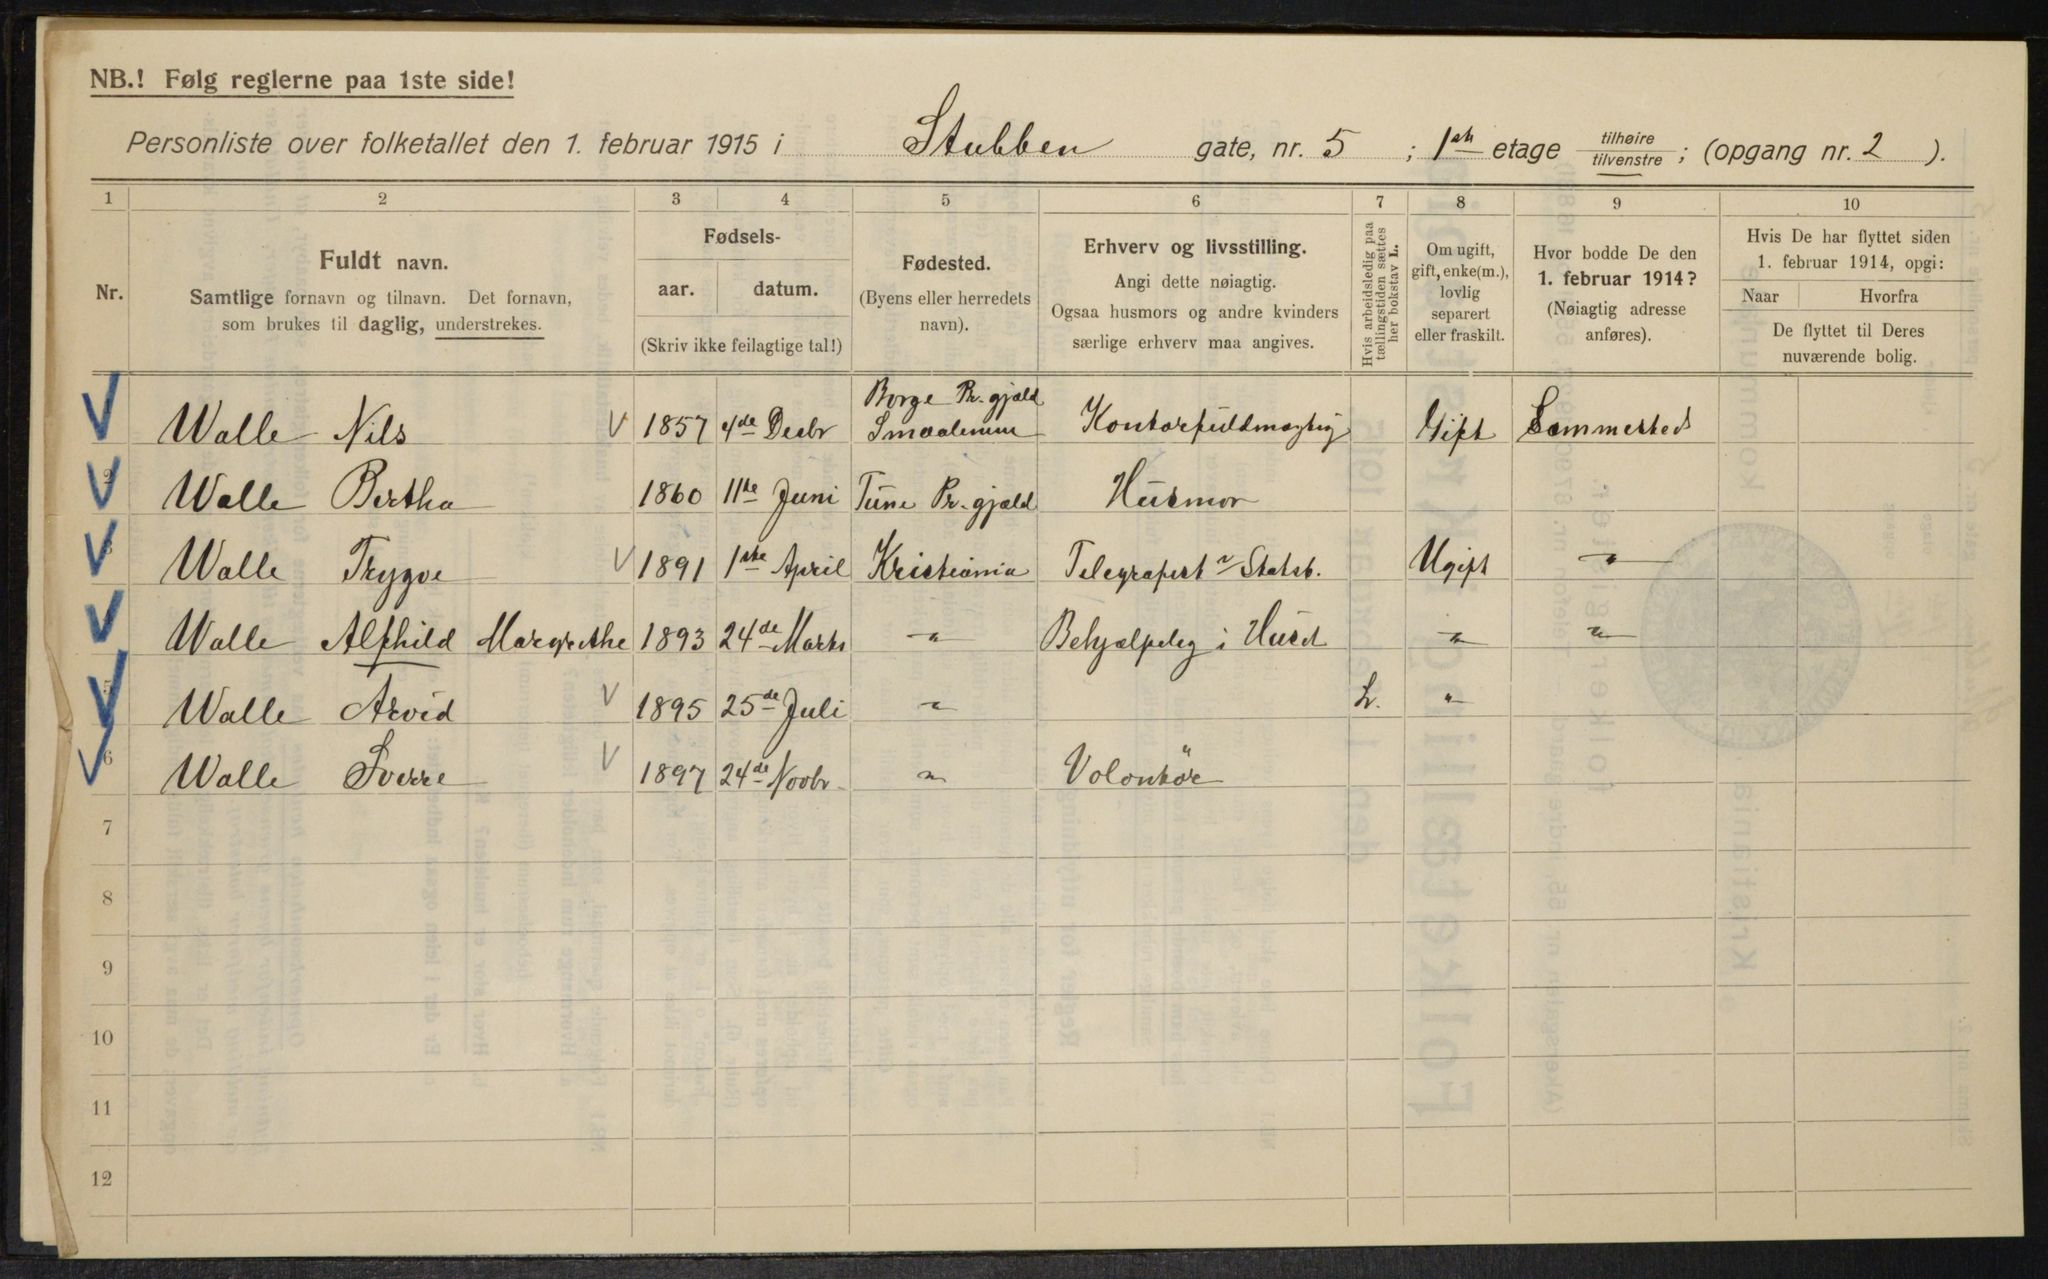 NB.! Følg reglerne paa 1ste side!
Personliste over folketallet den 1. februar 1915 i Stubben gate, nr. 5 ; 1ste etage tilhøire / tilvenstre ; (opgang nr. 2 ).
1 2 3 4 5 6 7 8 9 10
Nr.
Fuldt navn.
Samtlige fornavn og tilnavn. Det fornavn,
som brukes til daglig, understrekes.
Fødsels-
aar. datum.
(Skriv ikke feilagtige tal!)
Fødested.
(Byens eller herredets
navn).
Erhverv og livsstilling.
Angi dette nøiagtig.
Ogsaa husmors og andre kvinders
særlige erhverv maa angives.
Hvis arbeidsledig paa
tællingstiden sættes
her bokstav L.
Om ugift,
gift, enke(m.),
lovlig
separert
eller fraskilt.
Hvor bodde De den
1. februar 1914?
(Nøiagtig adresse
anføres).
Hvis De har flyttet siden
1. februar 1914, opgi:
Naar Hvorfra
De flyttet til Deres
nuværende bolig.
Walle Nils 1857 4de Decbr Borge Pr.gjæld Smaalenene Kontorfuldmægtig Gift Sammested
2 Walle Bertha 1860 11te Juni Tune Pr.gjæld Husmor
3 Walle Trygve 1891 1ste April Kristiania Telegrafist v/ Statsb. Ugift "
Walle Alfhild Margrethe 1893 24de Marts " Behjælpelig i Huset " "
5 Walle Arvid 1895 25de Juli " L. "
6 Walle Sverre 1897 24de Novbr " Volontør
7
8
9
10
11
12